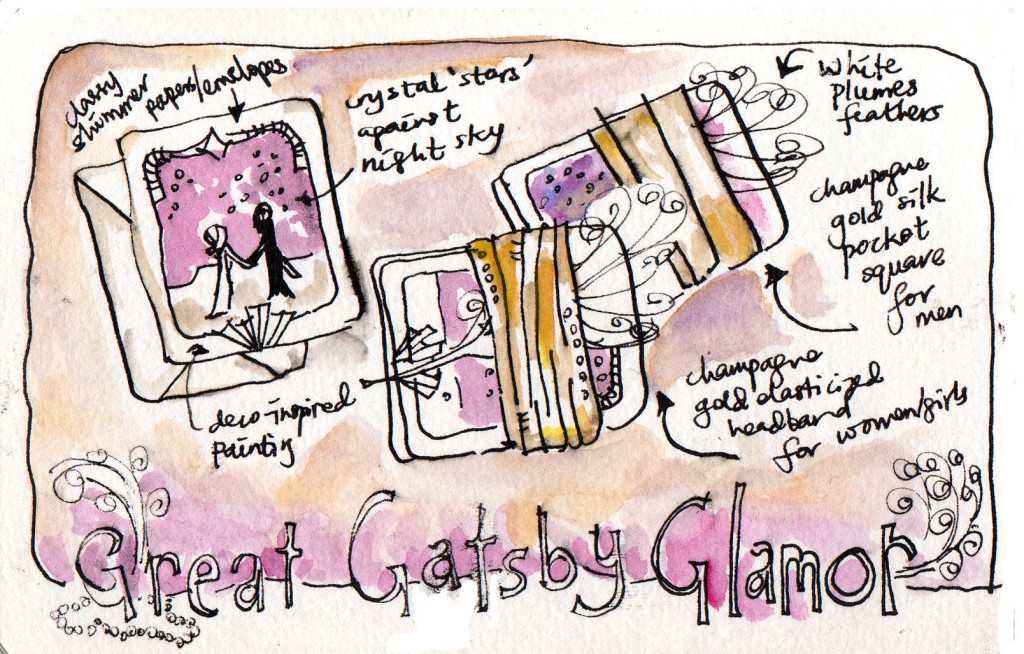 classy
shimmer
paper/envelopes
crystal 'stars'
against
night sky
white
plumes
feathers
champagne
gold silk
pocket
square
for
men
deco-inspired
painting
champagne
gold elasticized
headband
for women/girls
Great Gatsby Glamor